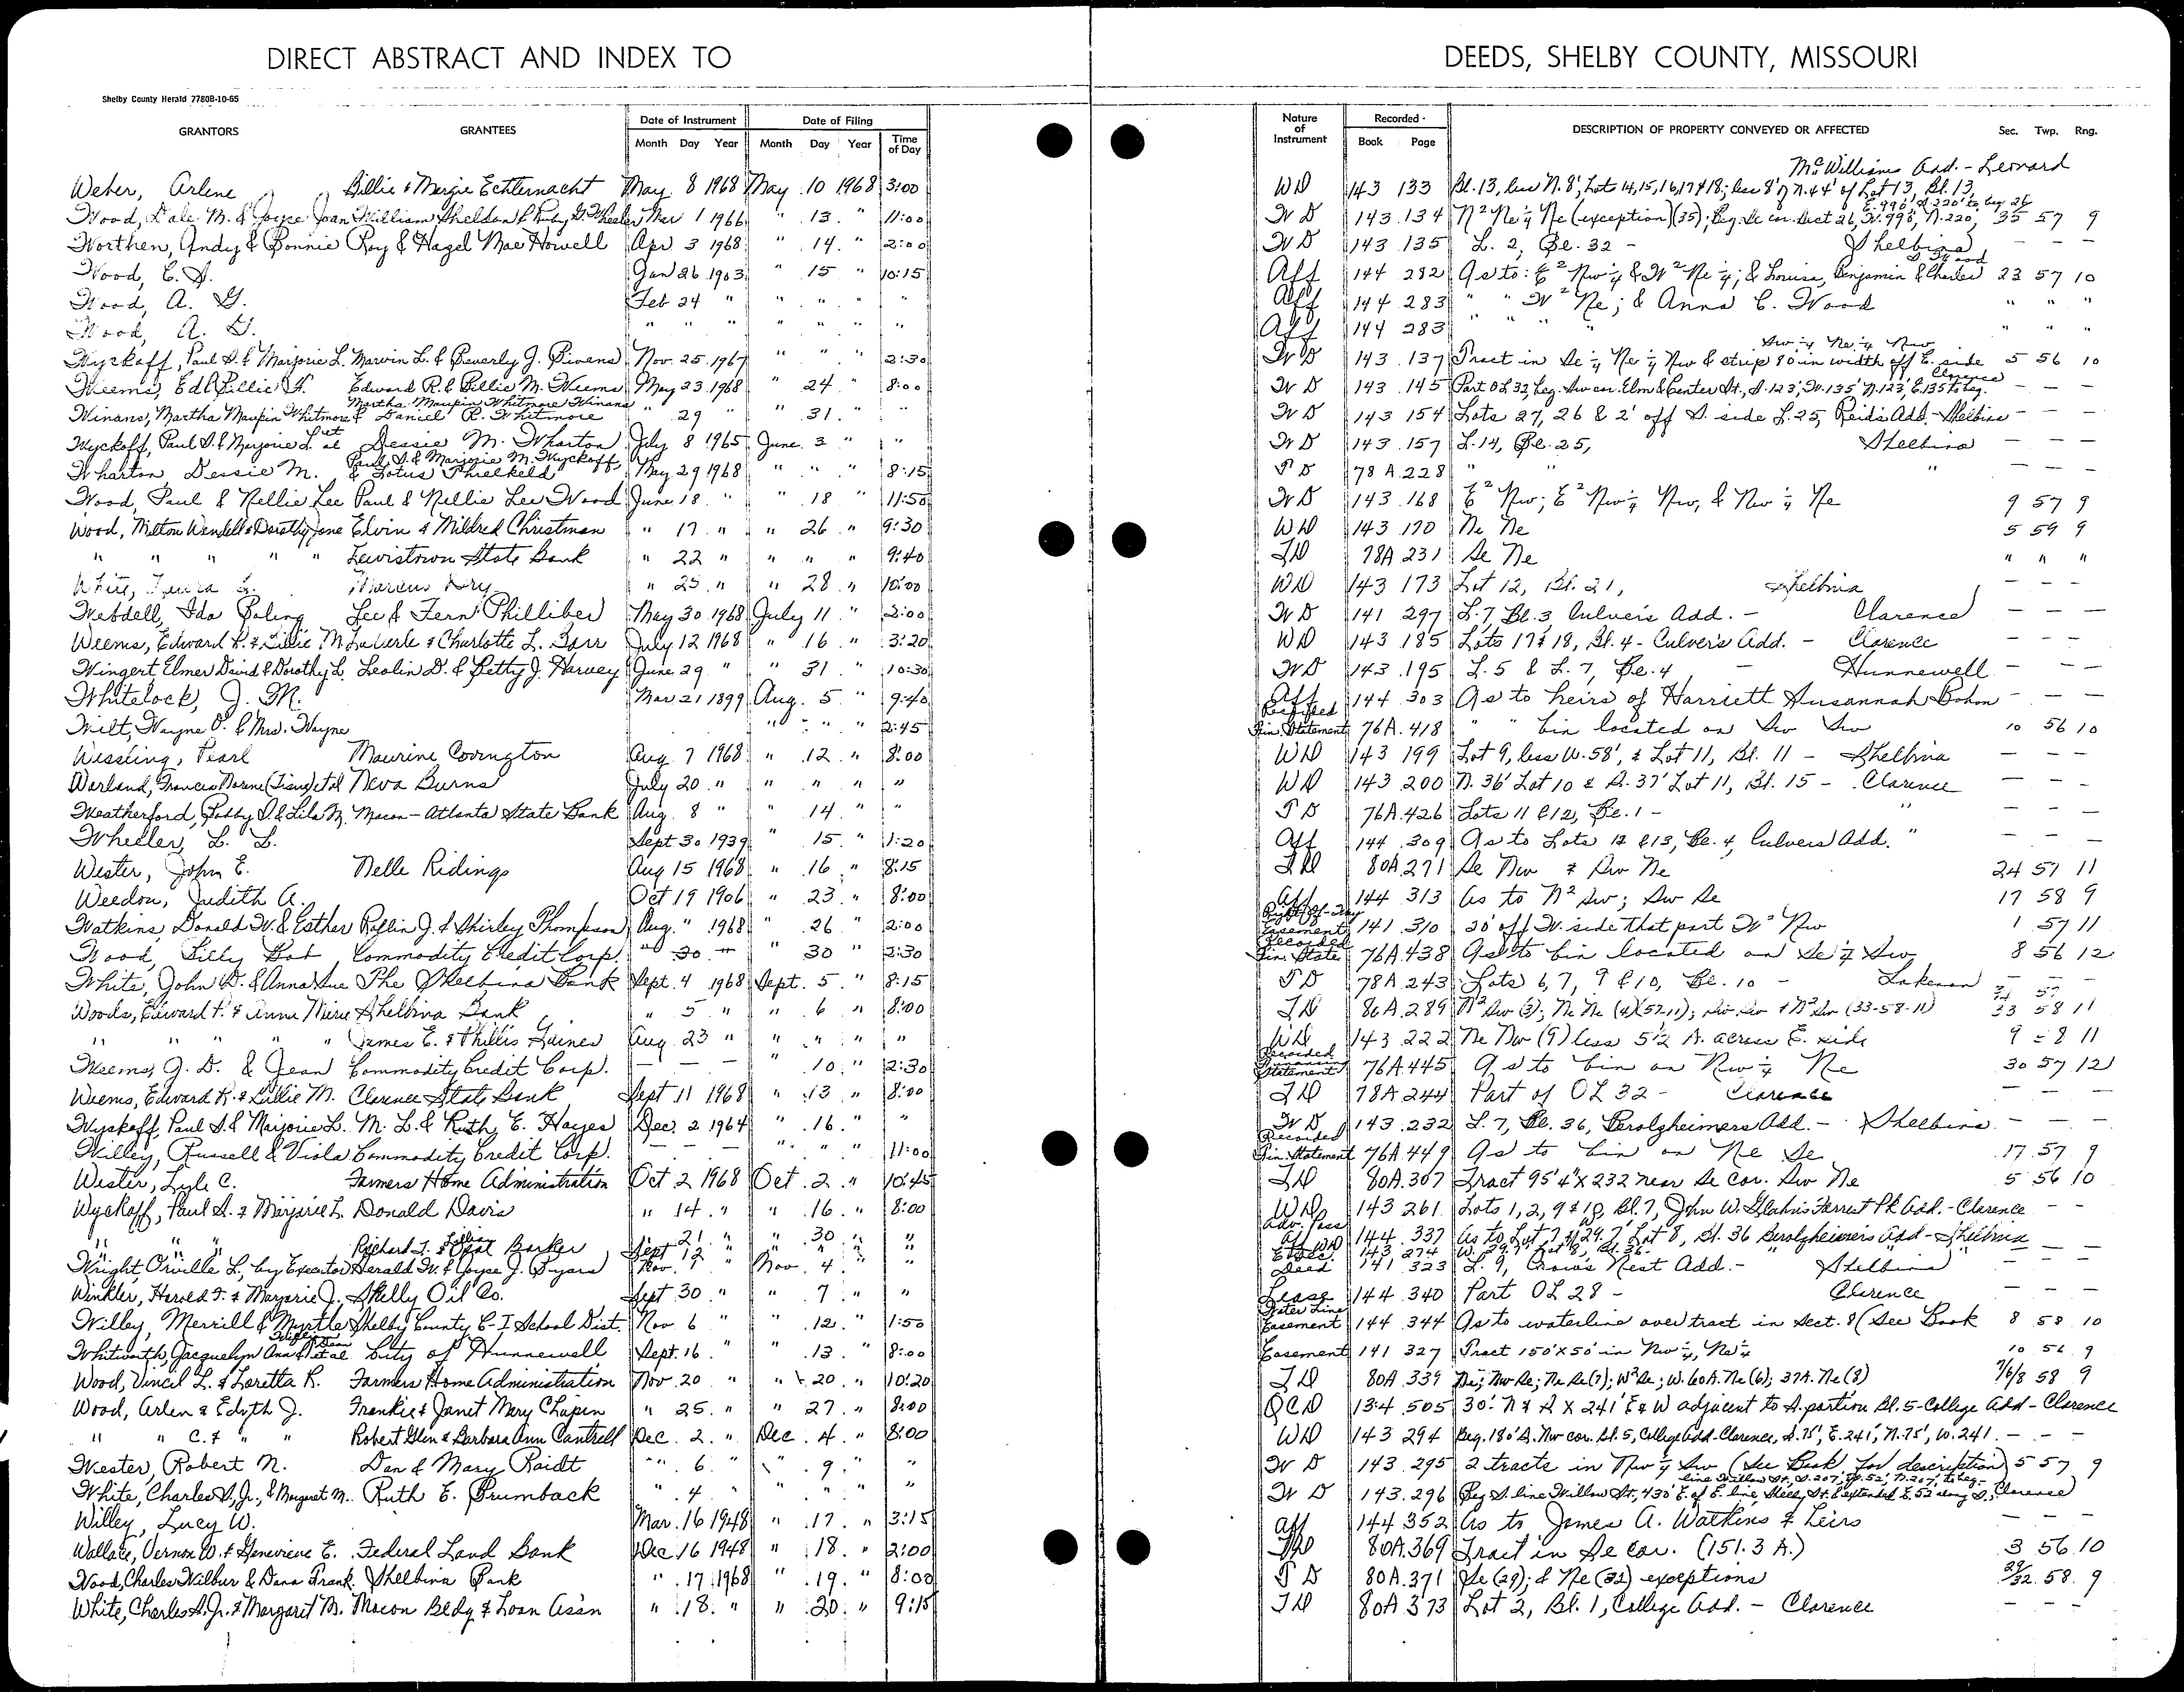 DIRECT ABSTRACT AND INDEX TO
DEEDS, SHELBY COUNTY, MISSOURI
Shelby County Herald 7780B-10-65
GRANTORS GRANTEES Date of Instrument Date of Filing
Month Day Year Month Day Year Time of Day
Nature of Instrument Recorded Book Page DESCRIPTION OF PROPERTY CONVEYED OR AFFECTED Sec. Twp. Rng.
McWilliams Add. - Leonard
Weber, Arlene Billie & Margie Echternacht May 8 1968 May 10 1968 3:00 WD 143 133 Bl. 13, less N. 8'; Lots 14, 15, 16, 17 & 18; less 8' of N. 44' of Lot 13, Bl. 13,
E. 990', S. 220' to beg 26
Wood, Dale M. & Joyce Joan William Sheldon & Ruby G. Wheeler Mar 1 1966 " 13 " 11:00 WD 143 134 N² Ne ¼ Ne (exception) (35); Beg. Se cor. Sect 26, W. 990', N. 220', 35 57 9
Worthen, Andy & Bonnie Roy & Hazel Mae Howell Apr 3 1968 " 14 " 2:00 WD 143 135 L. 2, Bl. 32 - Shelbina — — —
Wood, C. S. Jan 26 1903 " 15 " 10:15 Aff 144 282 As to: E² Nw ¼ & W² Ne ¼; & Louisa, Benjamin & Charles Wood 23 57 10
Wood, A. G. Feb 24 " " " " " Aff 144 283 " " W² Ne; & Anna C. Wood " " "
Wood, A. G. " " " " " " " Aff 144 283 " " " " " " "
Sw ¼ Ne ¼ Nw
Wyckoff, Paul S. & Marjorie L. Marvin L. & Beverly J. Bivens Nov. 25 1967 " " " 2:30 WD 143 137 Tract in Se ¼ Ne ¼ Nw & strip 80 in width off E. side 5 56 10
Weems, Ed & Billie H. Edward R. & Billie M. Weems May 23 1968 " 24 " 8:00 WD 143 145 Part OL 32, beg. Sw cor. Elm & Center St., S. 123', W. 135' N. 123', E. 135 to beg. Clarence — — —
Martha Maupin Whitmore Winans
Winans, Martha Maupin Whitmore & Daniel R. Whitmore " 29 " " 31 " " WD 143 154 Lots 27, 26 & 2' off S. side L. 25, Reid's Add. - Shelbina — — —
Wyckoff, Paul S. & Marjorie L. et al Dessie M. Wharton July 8 1965 June 3 " " WD 143 157 L. 14, Bl. 25, Shelbina — — —
Paul S. & Marjorie M. Wyckoff
Wharton, Dessie M. & Lotus Threlkeld May 29 1968 " " " 8:15 TD 78A 228 " " " — — —
Wood, Paul & Nellie Lee Paul & Nellie Lee Wood June 18 " " 18 " 11:50 WD 143 168 E² Nw; E² Nw ¼ Nw, & Nw ¼ Ne 9 57 9
Wood, Milton Wendell & Dorothy Jane Ervin & Mildred Christman " 17 " " 26 " 9:30 WD 143 170 Ne Ne 5 59 9
" " " " " Lewistown State Bank " 22 " " " " 9:40 TD 78A 231 Se Ne " " "
White, Laura Marcus " 25 " " 28 " 10:00 WD 143 173 Lot 12, Bl. 21, Shelbina — — —
Webdell, Ida Boling Lee & Fern Philliber May 30 1968 July 11 " 2:00 WD 141 297 L. 7, Bl. 3, Culver's Add. - Clarence — — —
Weems, Edward R. & Lillie M. LaVerle & Charlotte L. Barr July 12 1968 " 16 " 3:20 WD 143 185 Lots 17 & 18, Bl. 4 - Culver's Add. - Clarence — — —
Wingert Elmer David & Dorothy L. Leolin D. & Betty J. Harvey June 29 " " 31 " 10:30 WD 143 195 L. 5 & L. 7, Bl. 4 - Hunnewell — — —
Whitelock, J. M. Mar 21 1899 Aug. 5 " 9:40 Aff 144 303 As to heirs of Harriett Susannah Bohon — — —
Wilt, Wayne O. & Mrs. Wayne " " " 2:45 Recorded Fin. Statement 76A 418 " " bin located on Sw Sw 10 56 10
Wissling, Pearl Maurine Covington Aug 7 1968 " 12 " 8:00 WD 143 199 Lot 9, less W. 58', & Lot 11, Bl. 11 - Shelbina — — —
Worland, Frances Norene (Triny) et al Neva Burns July 20 " " " " " WD 143 200 N. 36' Lot 10 & S. 37' Lot 11, Bl. 15 - Clarence — — —
Weatherford, Bobby S. & Lila M. Macon-Atlanta State Bank Aug. 8 " " 14 " TD 76A 426 Lots 11 & 12, Bl. 1 - " — — —
Wheeler, L. L. Sept 30 1939 " 15 " 1:20 Aff 144 309 As to Lots 12 & 13, Bl. 4, Culvers Add. " — — —
Wester, John E. Nelle Ridings Aug 15 1968 " 16 " 8:15 TD 80A 271 Se Nw & Sw Ne 24 57 11
Weedon, Judith A. Oct 19 1906 " 23 " 8:00 Aff 144 313 As to N² Sw; Sw Se 17 58 9
Watkins, Donald W. & Esther Rollin J. & Shirley Thompson Aug. " 1968 " 26 " 2:00 Right-Of-Way Easement 141 310 20' off W. side that part W² Nw 1 57 11
Wood, Billy Bob Commodity Credit Corp. " 30 " 30 " 2:30 Recorded Fin. State 76A 438 As to bin located on Se ¼ Sw 8 56 12
White, John D. & Anna Sue The Shelbina Bank Sept. 4 1968 Sept. 5 " 8:15 TD 78A 243 Lots 6, 7, 9 & 10, Bl. 10 - Lakenan — — —
Woods, Edward P. & Anna Marie Shelbina Bank " 5 " " 6 " 8:00 TD 80A 289 N² Sw (3); Ne Ne (4)(57-11); Sw Sw & N² Sw (33-58-11) 33 58 11
" " " " James E. & Phillis Gaines Aug 23 " " " " " WD 143 222 Ne Nw (9) less 5½ A. across E. side 9 58 11
Weems, J. D. & Jean Commodity Credit Corp. — — " 10 " 2:30 Recorded Financing Statement 76A 445 As to bin on Nw ¼ Ne 30 57 12
Weems, Edward R. & Lillie M. Clarence State Bank Sept 11 1968 " 13 " 8:00 TD 78A 244 Part of OL 32 - Clarence — — —
Wyckoff, Paul S. & Marjorie L. M. L. & Ruth E. Hayes Dec. 2 1964 " 16 " " WD 143 232 L. 7, Bl. 36, Berolzheimers Add. - Shelbina — — —
Willey, Russell & Viola Commodity Credit Corp. — — " " " 11:00 Recorded Fin. Statement 76A 449 As to bin on Ne Se 17 57 9
Wester, Lyle C. Farmers Home Administration Oct 2 1968 Oct. 2 " 10:45 TD 80A 307 Tract 95'4" X 232 near Se cor. Sw Ne 5 56 10
Wyckoff, Paul S. & Marjorie L. Donald Davis " 14 " " 16 " 8:00 WD 143 261 Lots 1, 2, 9 & 10, Bl. 7, John W. Glahn's Forrest Pk Add. - Clarence — —
" " " " 21 " " 30 " " Adv. Poss Aff 144 337 As to Lot 7 & W 29.7' Lot 8, Bl. 36 Berolzheimer's Add - Shelbina
Richard L. & Opal Lillian Barker Sept 12 " " " " WD 143 274 W. 29.7' Lot 8, Bl. 36 - " "
Wright, Orville L., by Executor Herald W. & Joyce J. Byars Nov. 1 " Nov. 4 " " Exec. Deed 141 323 L. 9, Crow's Nest Add. - Shelbina — — —
Winkler, Harold F. & Marjorie J. Skelly Oil Co. Sept 30 " " 7 " " Lease 144 340 Part OL 28 - Clarence — — —
Willey, Merrill & Myrtle Shelby County C-I School Dist. Nov. 6 " " 12 " 1:50 Water Line Easement 144 344 As to waterline over tract in Sect. 8 (See Book 8 58 10
Whitworth, Jacquelyn Ann & William Dean et al City of Hunnewell Sept. 16 " " 13 " 8:00 Easement 141 327 Tract 150' X 50' in Nw ¼, Ne ¼ 10 56 9
Wood, Vincil L. & Loretta R. Farmers Home Administration Nov. 20 " " 20 " 10:20 TD 80A 339 Ne; Nw Se; Ne Se (7); W² Se; W. 60A. Ne (6); 37A. Ne (8) 7/6/8 58 9
Wood, Arlen & Edyth J. Frankie & Janet Mary Chapin " 25 " " 27 " 8:00 QCD 134 505 30' N & S X 241' E & W adjacent to S. portion Bl. 5 - College Add - Clarence
" " C. & " " Robert Glen & Barbara Ann Cantrell Dec. 2 " Dec. 4 " 8:00 WD 143 294 Beg. 180' S. Nw cor. Bl. 5, College Add. Clarence, S. 75', E. 241', N. 75', W. 241. — — —
Wester, Robert N. Dan & Mary Raidt " 6 " " 9 " " WD 143 295 2 tracts in Nw ¼ Sw (See Book for description) 5 57 9
line Willow St., S. 207', W. 52', N. 207', to beg. -
White, Charles S., Jr., & Margaret M. Ruth E. Brumback " 4 " " " " " WD 143 296 Beg S. line Willow St., 430' E. of E. line, Shelby St. & extended E. 52' along S., Clarence
Willey, Lucy W. Mar. 16 1948 " 17 " 3:15 Aff 144 352 As to James A. Watkins & heirs — — —
Wallace, Vernon W. & Genevieve E. Federal Land Bank Dec 16 1948 " 18 " 2:00 TD 80A 369 Tract in Se cor. (151.3 A.) 3 56 10
Wood, Charles Wilbur & Dana Frank Shelbina Bank " 17 1968 " 19 " 8:00 TD 80A 371 Se (29); & Ne (32) exceptions 29/32 58 9
White, Charles S. Jr. & Margaret M. Macon Bldg & Loan Ass'n " 18 " " 20 " 9:15 TD 80A 373 Lot 2, Bl. 1, College Add. - Clarence — — —